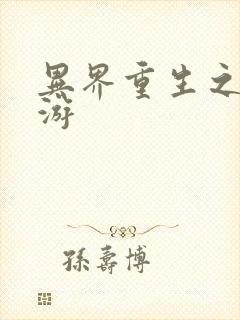 異界重生之
游
孫壽博